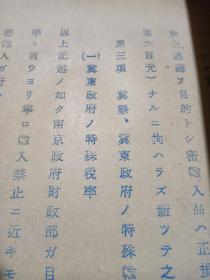 税逃避ヲ目的トシ密輸入品ハ正規
至六百元)ナルニ拘ハラズ競ツテ之
第三項 冀察、冀東政府ノ特殊輸
(一) 冀東政府ノ特殊税率
以上記述ノ如ク南京政府財政部ガ日
率ト言ウヨリ寧ロ輸入禁止ニ近キモ
密輸入ガ行